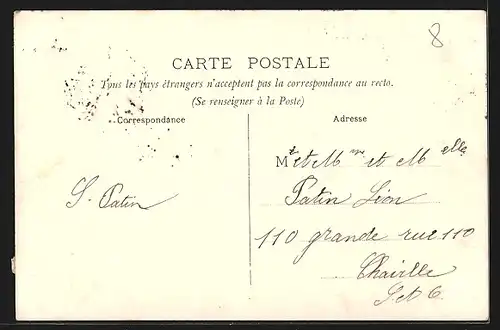 8
CARTE POSTALE
Tous les pays étrangers n'acceptent pas la correspondance au recto.
(Se renseigner à la Poste)
Correspondance
Adresse
Mr et Mme et Melle
S. Patin
Patin Lion
110 grande rue 110
Chaville
S. et O.